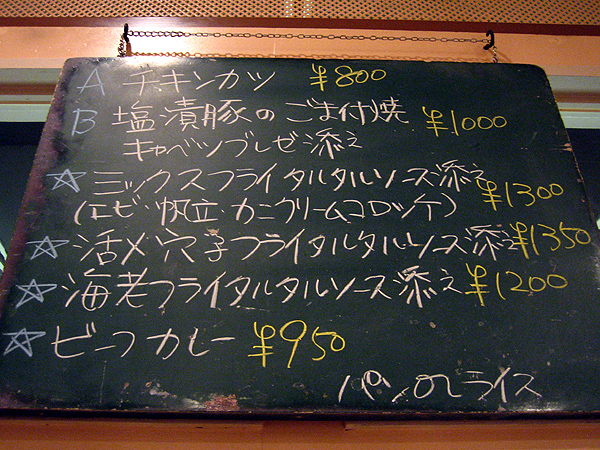 A チキンカツ ¥800
B 塩漬豚のごま付焼 ¥1000
キャベツブレゼ添え
☆ミックスフライタルタルソース添え ¥1300
(エビ・帆立・カニクリームコロッケ)
☆活〆穴子フライタルタルソース添え ¥1350
☆海老フライタルタルソース添え ¥1200
☆ビーフカレー ¥950
パンorライス